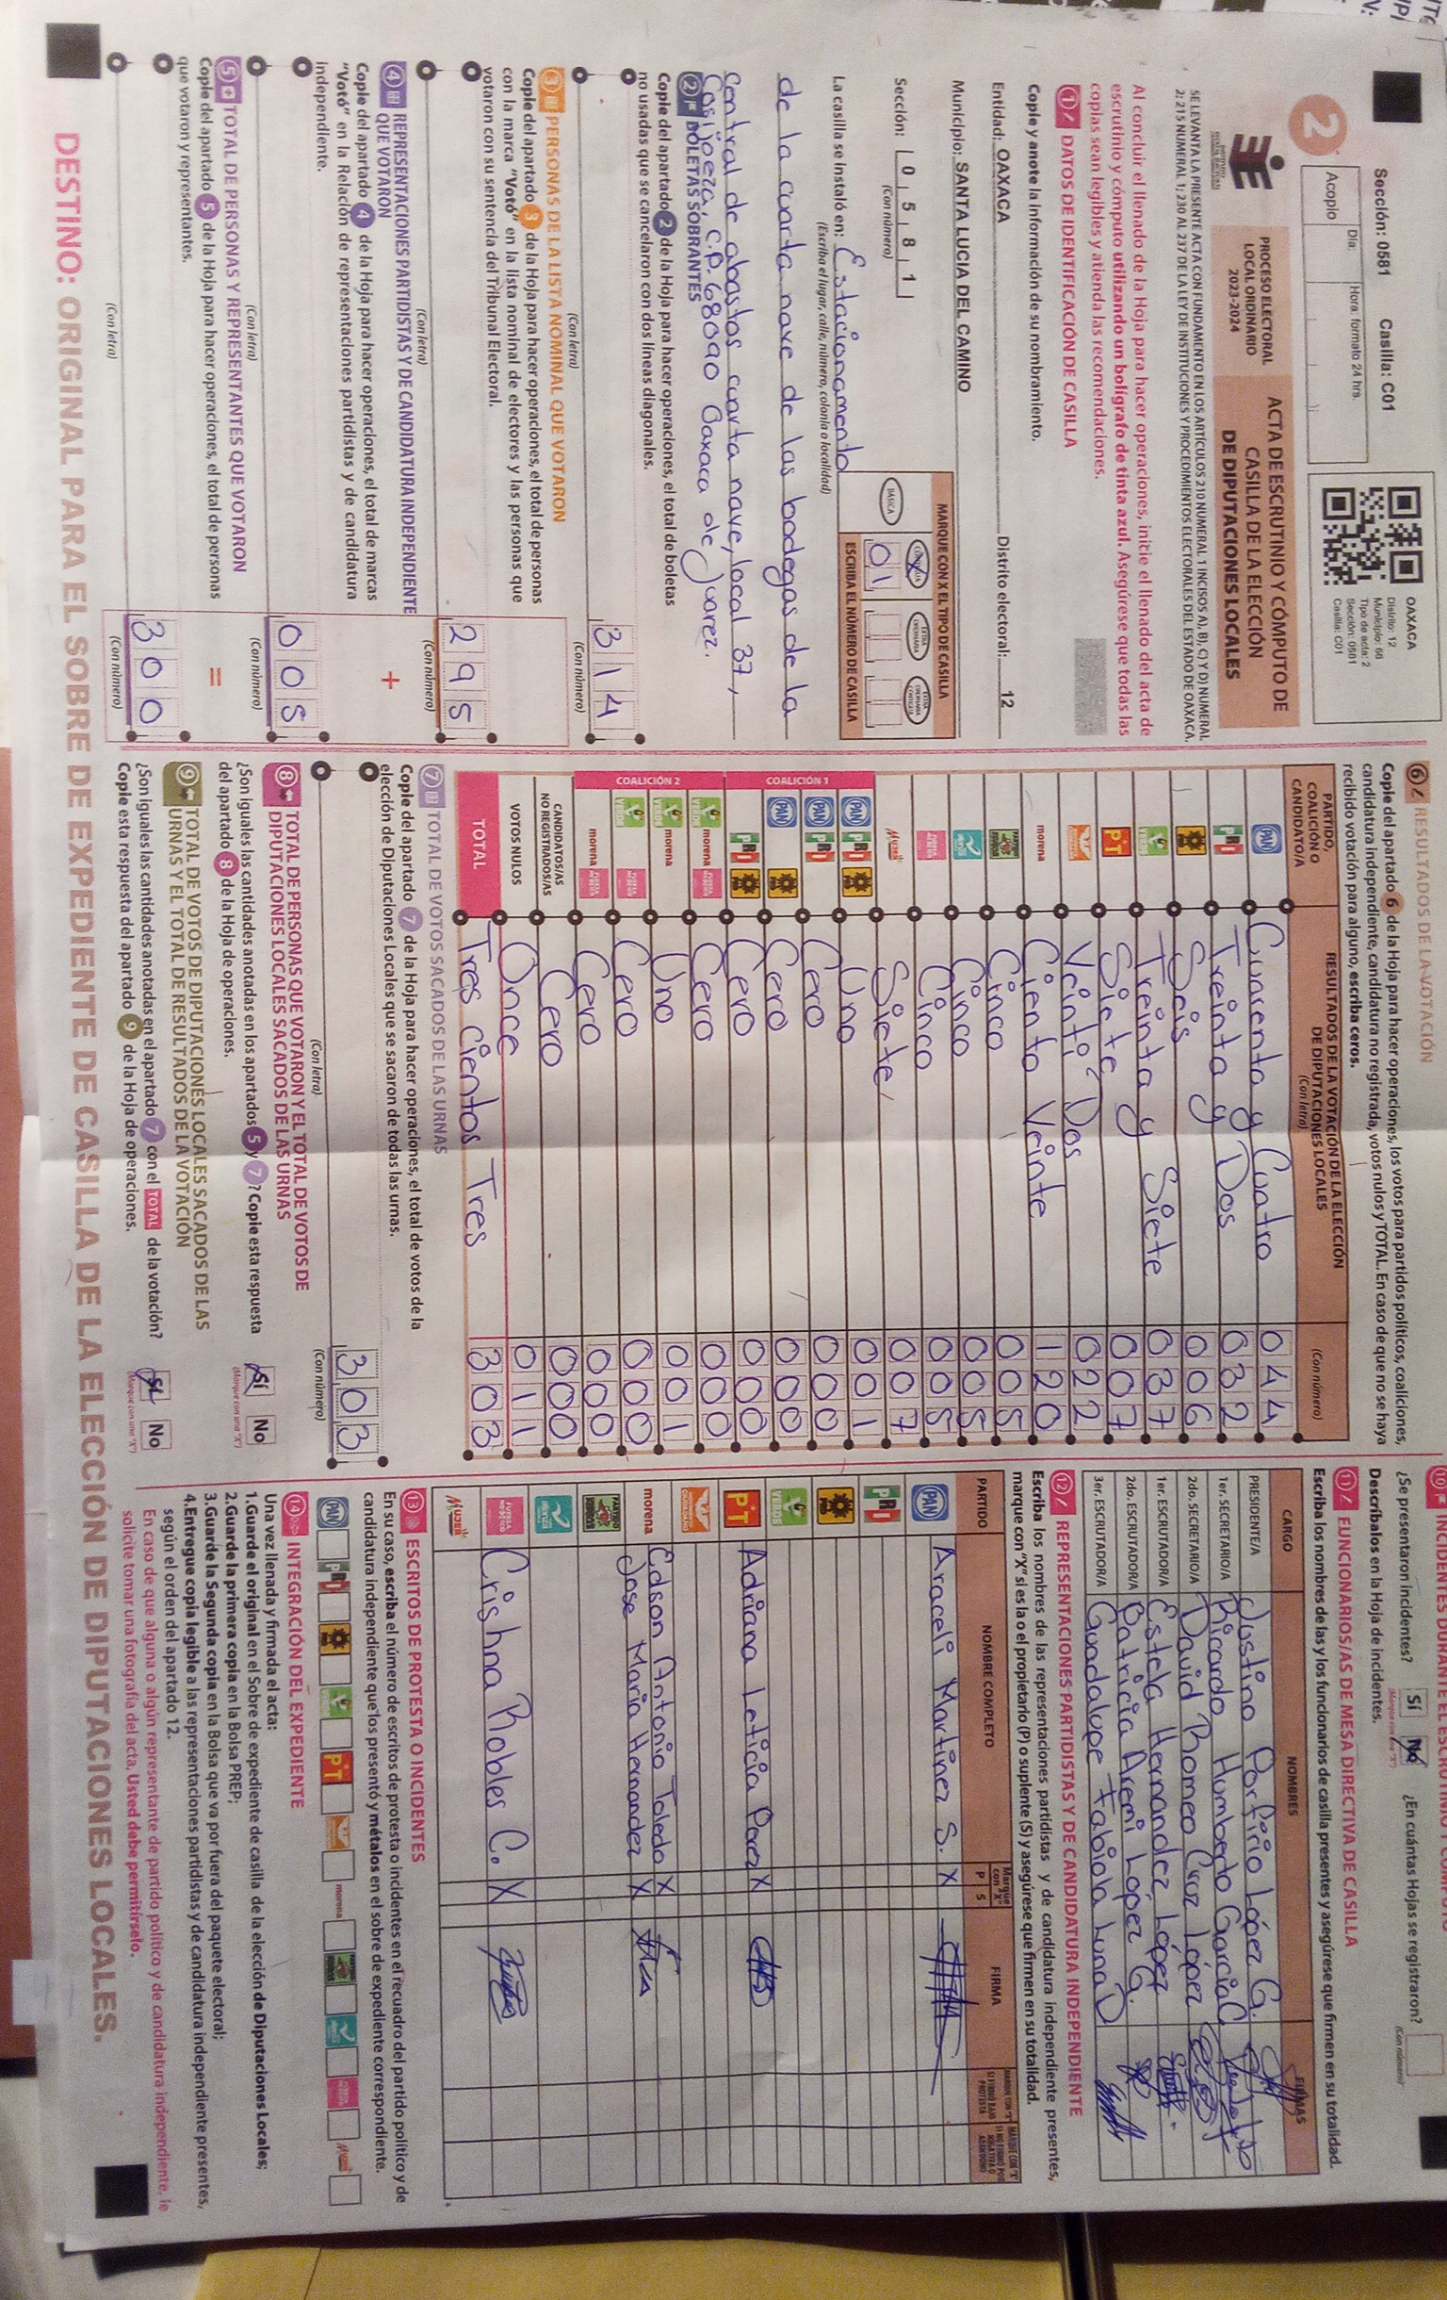 Sección: 0581 Casilla: C01
Día: Hora: formato 24 hrs.
Acopio
2
OAXACA
Distrito: 12
Municipio: 66
Tipo de acta: 2
Sección: 0581
Casilla: C01
PROCESO ELECTORAL
LOCAL ORDINARIO
2023-2024
ACTA DE ESCRUTINIO Y CÓMPUTO DE
CASILLA DE LA ELECCIÓN
DE DIPUTACIONES LOCALES
SE LEVANTA LA PRESENTE ACTA CON FUNDAMENTO EN LOS ARTÍCULOS 210 NUMERAL 1 INCISOS A), B), C) Y D) NUMERAL
2; 215 NUMERAL 1; 230 AL 237 DE LA LEY DE INSTITUCIONES Y PROCEDIMIENTOS ELECTORALES DEL ESTADO DE OAXACA.
Al concluir el llenado de la Hoja para hacer operaciones, inicie el llenado del acta de
escrutinio y cómputo utilizando un bolígrafo de tinta azul. Asegúrese que todas las
copias sean legibles y atienda las recomendaciones.
1 DATOS DE IDENTIFICACIÓN DE CASILLA
Copie y anote la información de su nombramiento.
Entidad: OAXACA Distrito electoral: 12
Municipio: SANTA LUCIA DEL CAMINO
Sección: 0 5 8 1
(Con número)
MARQUE CON X EL TIPO DE CASILLA
BÁSICA
01
ESCRIBA EL NÚMERO DE CASILLA
La casilla se instaló en: Estacionamento
(Escriba el lugar, calle, número, colonia o localidad)
de la cuarta nave de las bodegas de la
central de abastos cuarta nave, local 37,
Cosijoeza, C.P. 68090 Oaxaca de Juarez.
2 BOLETAS SOBRANTES
Copie del apartado 2 de la Hoja para hacer operaciones, el total de boletas
no usadas que se cancelaron con dos líneas diagonales.
314
(Con letra) (Con número)
3 PERSONAS DE LA LISTA NOMINAL QUE VOTARON
Copie del apartado 3 de la Hoja para hacer operaciones, el total de personas
con la marca "Votó" en la lista nominal de electores y las personas que
votaron con su sentencia del Tribunal Electoral.
295
(Con letra) (Con número)
4 REPRESENTACIONES PARTIDISTAS Y DE CANDIDATURA INDEPENDIENTE
QUE VOTARON
+
Copie del apartado 4 de la Hoja para hacer operaciones, el total de marcas
"Votó" en la Relación de representaciones partidistas y de candidatura
independiente.
005
(Con letra) (Con número)
5 TOTAL DE PERSONAS Y REPRESENTANTES QUE VOTARON
=
Copie del apartado 5 de la Hoja para hacer operaciones, el total de personas
que votaron y representantes.
300
(Con letra) (Con número)
6 RESULTADOS DE LA VOTACIÓN
Copie del apartado 6 de la Hoja para hacer operaciones, los votos para partidos políticos, coaliciones,
candidatura independiente, candidatura no registrada, votos nulos y TOTAL. En caso de que no se haya
recibido votación para alguno, escriba ceros.
PARTIDO,
COALICIÓN O
CANDIDATO/A
RESULTADOS DE LA VOTACIÓN DE LA ELECCIÓN
DE DIPUTACIONES LOCALES
(Con letra) (Con número)
PAN Cuarenta y Cuatro 044
PRI Treinta y Dos 032
PRD Seis 006
VERDE Treinta y Siete 037
PT Siete 007
Veinti Dos 022
morena Ciento Veinte 120
Cinco 005
Cinco 005
Cinco 005
MUJER Siete 007
COALICIÓN 1
PAN PRI PRD Uno 001
PAN PRI Cero 000
PAN PRD Cero 000
PRI PRD Cero 000
COALICIÓN 2
VERDE morena Cero 000
VERDE morena Uno 001
VERDE Cero 000
morena Cero 000
CANDIDATOS/AS
NO REGISTRADOS/AS Cero 000
VOTOS NULOS Once 011
TOTAL Tres cientos Tres 303
7 TOTAL DE VOTOS SACADOS DE LAS URNAS
Copie del apartado 7 de la Hoja para hacer operaciones, el total de votos de la
elección de Diputaciones Locales que se sacaron de todas las urnas.
303
(Con letra) (Con número)
8 TOTAL DE PERSONAS QUE VOTARON Y EL TOTAL DE VOTOS DE
DIPUTACIONES LOCALES SACADOS DE LAS URNAS
¿Son iguales las cantidades anotadas en los apartados 5 y 7? Copie esta respuesta
del apartado 8 de la Hoja de operaciones.
Sí No
9 TOTAL DE VOTOS DE DIPUTACIONES LOCALES SACADOS DE LAS
URNAS Y EL TOTAL DE RESULTADOS DE LA VOTACIÓN
¿Son iguales las cantidades anotadas en el apartado 7 con el TOTAL de la votación?
Copie esta respuesta del apartado 9 de la Hoja de operaciones.
Sí No
¿Se presentaron incidentes? Sí No ¿En cuántas Hojas se registraron?
Descríbalos en la Hoja de incidentes.
11 FUNCIONARIOS/AS DE MESA DIRECTIVA DE CASILLA
Escriba los nombres de las y los funcionarios de casilla presentes y asegúrese que firmen en su totalidad.
CARGO NOMBRES FIRMAS
PRESIDENTE/A Justino Porfirio López G.
1er. SECRETARIO/A Ricardo Humberto Garcia C
2do. SECRETARIO/A David Romeo Cruz López
1er. ESCRUTADOR/A Estela Hernandez López
2do. ESCRUTADOR/A Patricia Aremi Lopez G.
3er. ESCRUTADOR/A Guadalupe Fabiola Luna D
12 REPRESENTACIONES PARTIDISTAS Y DE CANDIDATURA INDEPENDIENTE
Escriba los nombres de las representaciones partidistas y de candidatura independiente presentes,
marque con "X" si es la o el propietario (P) o suplente (S) y asegúrese que firmen en su totalidad.
PARTIDO NOMBRE COMPLETO P S FIRMA
PAN Araceli Martinez S. X
PRI
PRD
VERDE
PT Adriana Leticia Perez X
morena Edson Antonio Toledo X
Jose Maria Hernandez X
Crishna Robles C. X
MUJER
13 ESCRITOS DE PROTESTA O INCIDENTES
En su caso, escriba el número de escritos de protesta o incidentes en el recuadro del partido político y de
candidatura independiente que los presentó y métalos en el sobre de expediente correspondiente.
PAN PRI VERDE PT morena MUJER
14 INTEGRACIÓN DEL EXPEDIENTE
Una vez llenada y firmada el acta:
1.Guarde el original en el Sobre de expediente de casilla de la elección de Diputaciones Locales;
2.Guarde la primera copia en la Bolsa PREP;
3.Guarde la Segunda copia en la Bolsa que va por fuera del paquete electoral;
4.Entregue copia legible a las representaciones partidistas y de candidatura independiente presentes,
según el orden del apartado 12.
En caso de que alguna o algún representante de partido político y de candidatura independiente, le
solicite tomar una fotografía del acta, Usted debe permitírselo.
DESTINO: ORIGINAL PARA EL SOBRE DE EXPEDIENTE DE CASILLA DE LA ELECCIÓN DE DIPUTACIONES LOCALES.